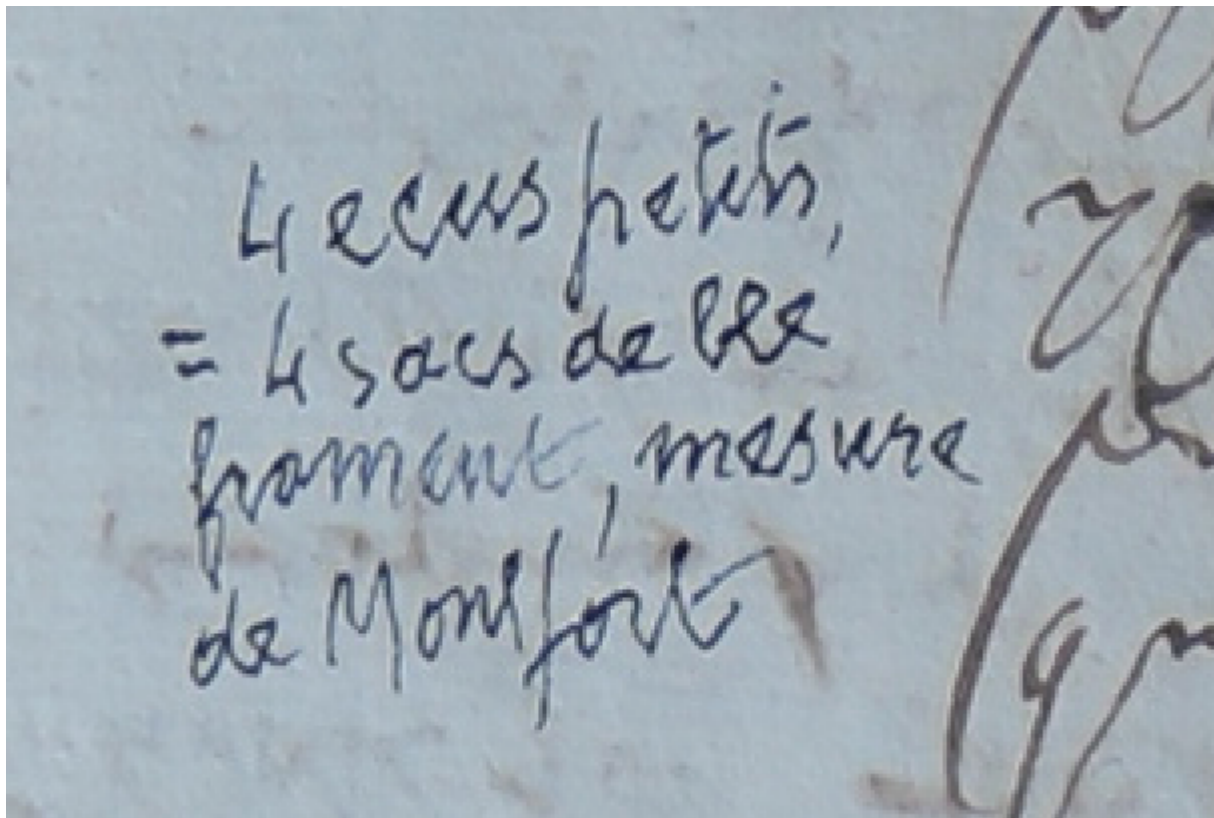 4 ecus petits,
= 4 sacs de ble
froment, mesure
de Montfort